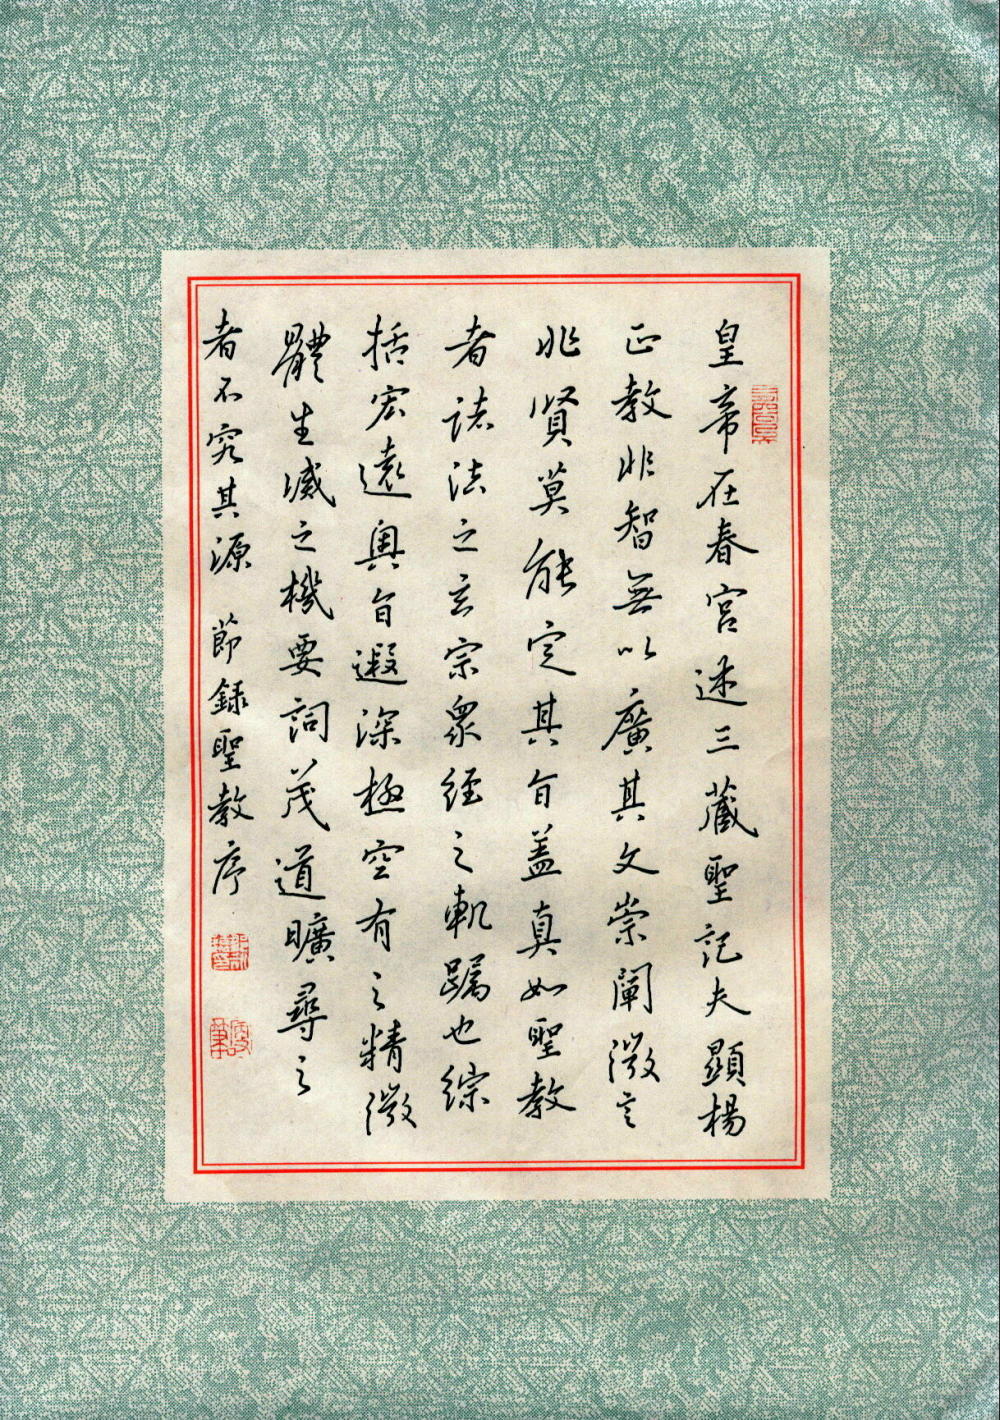 皇帝在春宮述三藏聖記夫顯楊
正教非智無以廣其文崇闡微言
非賢莫能定其旨蓋真如聖教
者諸法之玄宗眾經之軌躅也綜
括宏遠奧旨遐深極空有之精微
體生滅之機要詞茂道曠尋之
者不究其源 節録聖教序